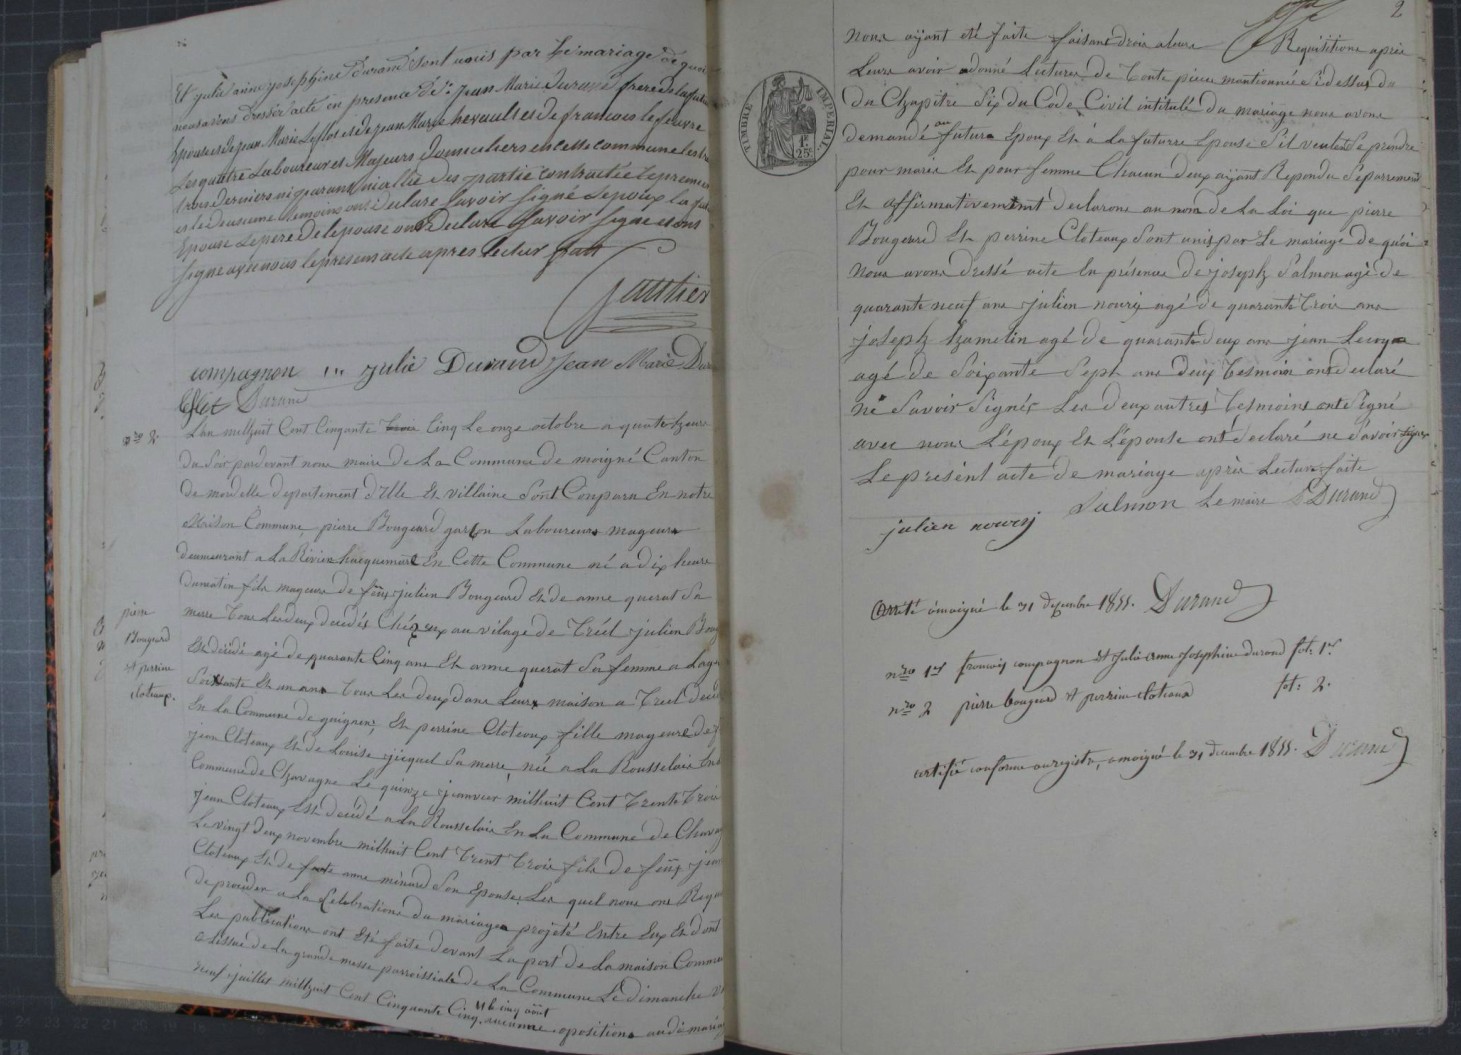 Et julie anne josephine Durand sont unis par le mariage de quoi
nous avons dressé acte en presence de: Jean Marie Durand frere de la future
Epouse de jean Marie Leflos et de jean Marie hevault et de francois lefeuvre
Les quatre Laboureurs et Majeurs domiciliers en cette commune les
trois derniers ni parant ni allié des partie contractée Le premier
et le deuxieme temoins ont declare savoir signé Lepoux La
Epouse Le pere de lepouse ont Declare savoir signe et ont
signe avec nous le present acte apres lectur fait
Gauthier
compagnon julie Durand Jean Marie
Durand
nº 2.
L'an milhuit Cent Cinquante Cinq Le onze octobre a quatre heure
du Soir pardevant nous maire de La Commune de moigné Canton
de mordelle departement d'Ille Et villaine Sont Comparu En notre
Maison Commune, pierre Bougeard garson Laboureur mageure
demeurant a La Rivier hacquemare En Cette Commune né a dix heure
du matin fils mageure de feu julien Bougeard Et de anne querat Sa
merre Tous Les deux décédés Chéz eux au vilage de Tréel julien
Est décédé agé de quarante Cinq ans Et anne querat Sa femme a Lage
Soixante Et un ans Tous Les deux dans Leurs maison a Treel
En La Commune de guignen; Et perrine Cloteaux fille mageure de
jean Cloteaux Et de Louise jicquel Sa merre, née a La Rousselais En
Commune de Chavagne Le quinze janvier milhuit Cent Trente Trois
Jean Cloteaux Est décédé a La Rousselais En La Commune de
Le vingt deux novembre milhuit Cent Trent Trois fils de feu
Cloteaux Et de feue anne minard Son Epouse; Les quel nous ont
de proceder a La Celebrations du mariage projeté Entre Eux Et dont
Les publications ont Eté faite devant La port de La maison
a Lissue de la grande messe parroissiale de La Commune Le dimanche
neuf juillet milhuit Cent Cinquante Cinq, aucunne opositions audi
et le cinq août
pierre
Bougeard
et perrine
cloteaux.
2
TIMBRE IMPERIAL
1F
25c
Nous ayant été faite faisant droit a leurs Requisitions après
Leurs avoir donné Lectures de Toute pieces mentionnée ci dessus du
du Chapitre Six du Code Civil intitulé du mariage nous avons
demandé au futurs Epoux Et à La future Epouse S'il veulent Se prendre
pour maris Et pour femme Chacun deux ayant Repondu Séparement
Et affirmativement declarons au nom de La Loi que pierre
Bougeard Et perrine Cloteaux Sont unis par Le mariage de quoi
Nous avons dressé acte En présence de joseph Salmon agé de
quarante neuf ans julien noury agé de quarante Trois ans
joseph hamelin agé de quarante deux ans jean Leroy
agé de Soixante Sept ans deux Tesmoin ont declaré
ne Savoir Signér Les deux autres Tesmoins onte Signé
avec nous L'époux Et L'épouse ont declaré ne Savoir signer
Le présent acte de mariage après Lecture faite
Salmon Le maire Durand
julien noury
Arrêté à moigné le 31 decembre 1855. Durand
nro 1er francois compagnon et Julie anne Josephine durand fol: 1er
nro 2 pierre bougeard et perrine cloteaux fol: 2.
certifié conforme au registre, a moigné le 31 decembre 1855. Durand